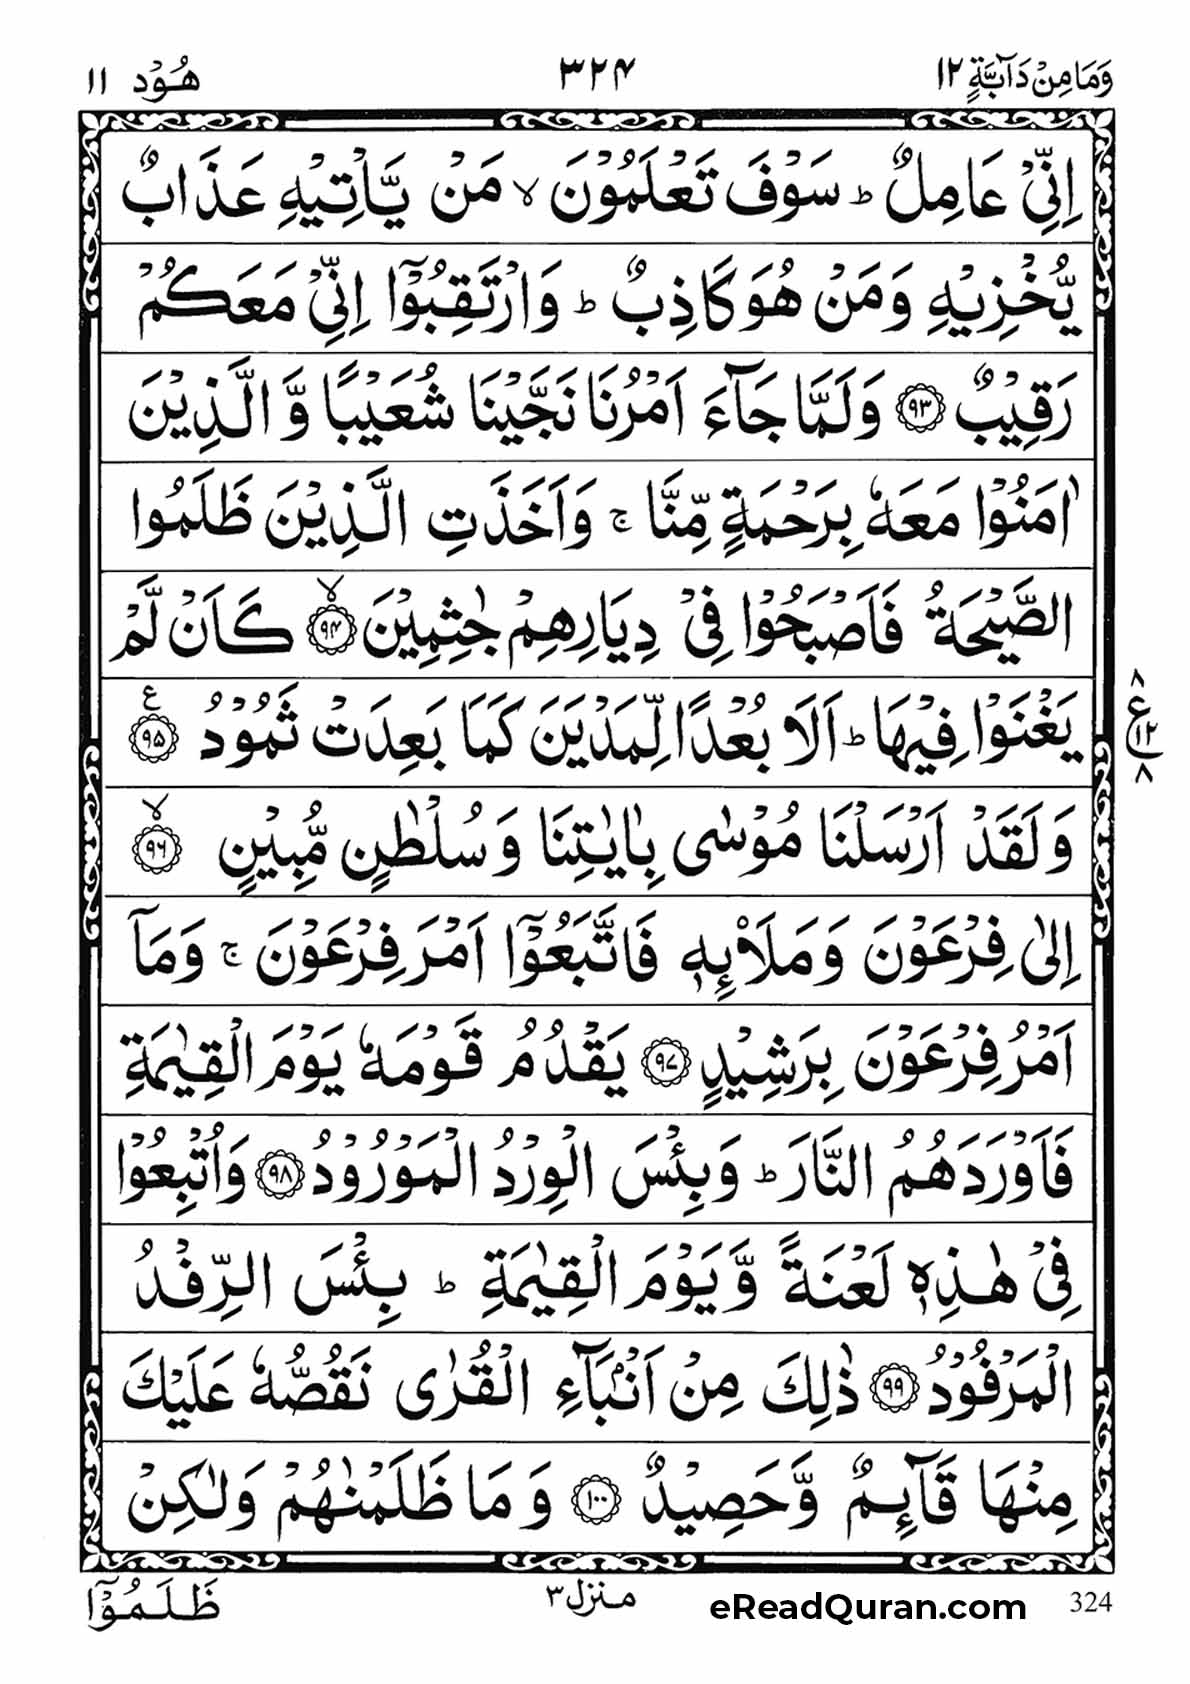 وَمَا مِنْ دَآبَّةٍ ١٢ ٣٢٤ هُوْد ١١
اِنِّىْ عَامِلٌ ؕ سَوْفَ تَعْلَمُوْنَ ۙ مَنْ يَّاْتِيْهِ عَذَابٌ
يُّخْزِيْهِ وَمَنْ هُوَ كَاذِبٌ ؕ وَارْتَقِبُوْۤا اِنِّىْ مَعَكُمْ
رَقِيْبٌ ۝٩٣ وَلَمَّا جَآءَ اَمْرُنَا نَجَّيْنَا شُعَيْبًا وَّالَّذِيْنَ
اٰمَنُوْا مَعَهٗ بِرَحْمَةٍ مِّنَّا ۚ وَاَخَذَتِ الَّذِيْنَ ظَلَمُوا
الصَّيْحَةُ فَاَصْبَحُوْا فِىْ دِيَارِهِمْ جٰثِمِيْنَ ۝٩٤ۙ كَاَنْ لَّمْ
يَغْنَوْا فِيْهَا ؕ اَلَا بُعْدًا لِّمَدْيَنَ كَمَا بَعِدَتْ ثَمُوْدُ ۝٩٥ ع
٨ ع ١٢ ٨
وَلَقَدْ اَرْسَلْنَا مُوْسٰى بِاٰيٰتِنَا وَسُلْطٰنٍ مُّبِيْنٍ ۝٩٦ۙ
اِلٰى فِرْعَوْنَ وَمَلَا۟ئِهٖ فَاتَّبَعُوْۤا اَمْرَ فِرْعَوْنَ ۚ وَمَاۤ
اَمْرُ فِرْعَوْنَ بِرَشِيْدٍ ۝٩٧ يَقْدُمُ قَوْمَهٗ يَوْمَ الْقِيٰمَةِ
فَاَوْرَدَهُمُ النَّارَ ؕ وَبِئْسَ الْوِرْدُ الْمَوْرُوْدُ ۝٩٨ وَاُتْبِعُوْا
فِىْ هٰذِهٖ لَعْنَةً وَّيَوْمَ الْقِيٰمَةِ ؕ بِئْسَ الرِّفْدُ
الْمَرْفُوْدُ ۝٩٩ ذٰلِكَ مِنْ اَنْۢبَآءِ الْقُرٰى نَقُصُّهٗ عَلَيْكَ
مِنْهَا قَآئِمٌ وَّحَصِيْدٌ ۝١٠٠ وَمَا ظَلَمْنٰهُمْ وَلٰكِنْ
ظَلَمُوْۤا منزل ٣ eReadQuran.com 324